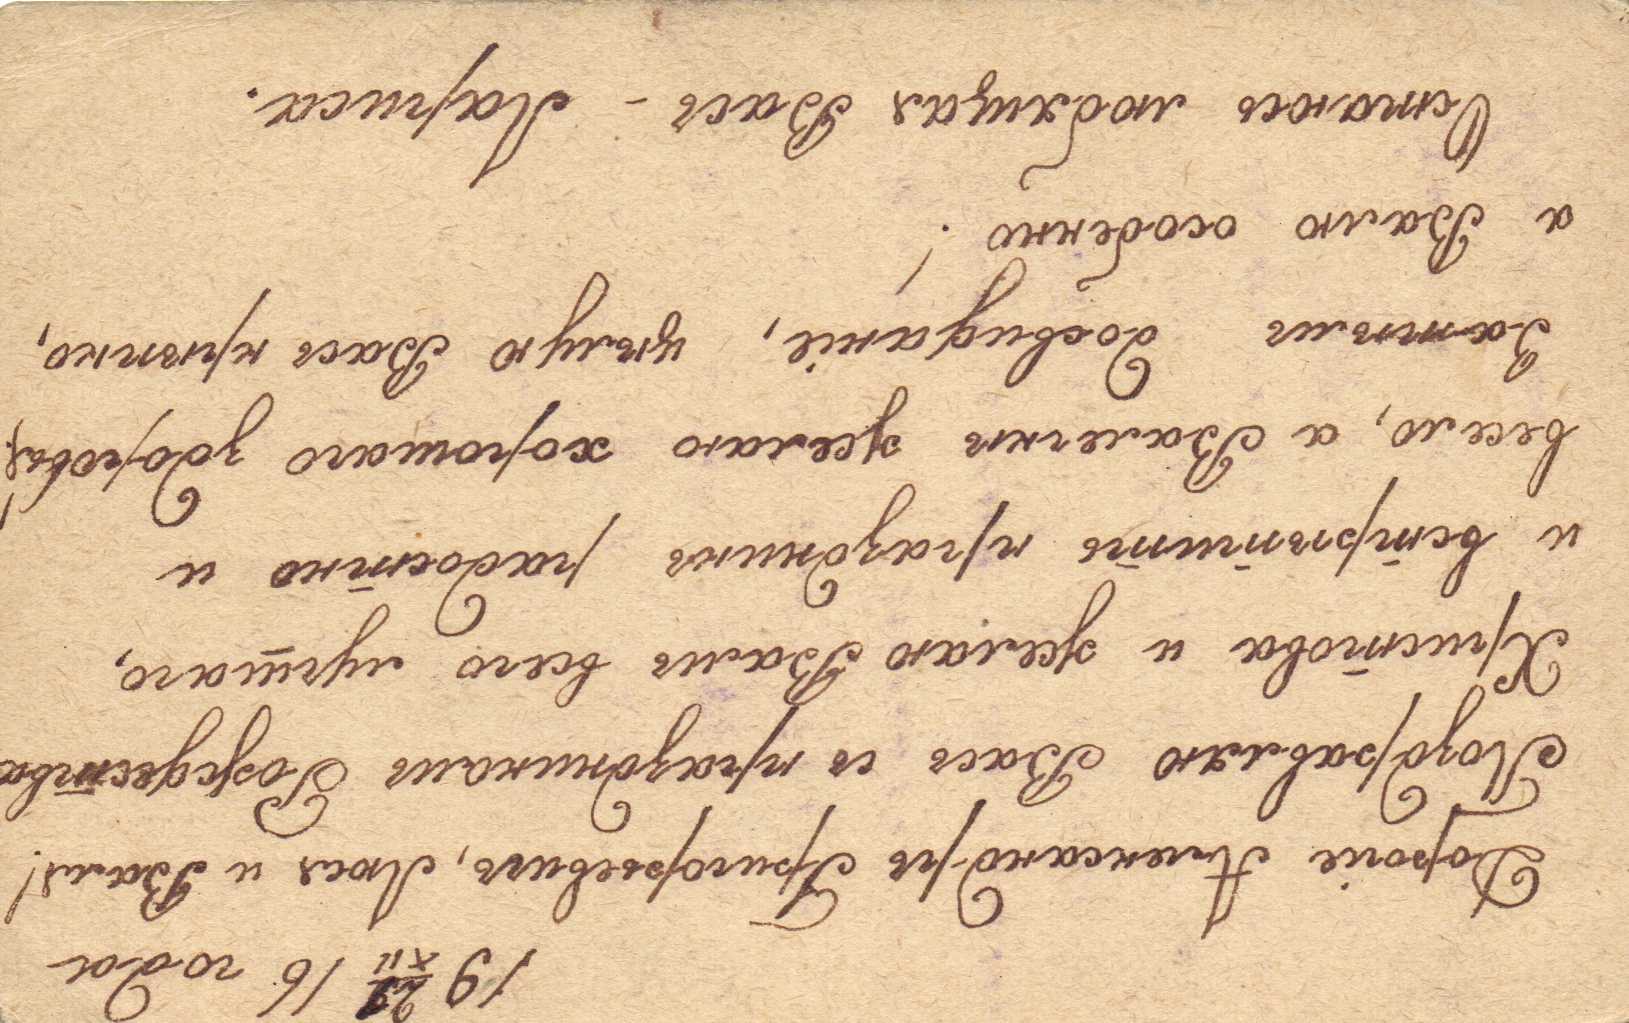 19 21/XII 16 года
Дорогіе Александръ Григорьевичъ, Люся и Валя!
Поздравляю Васъ съ праздникомъ Рождества
Христова и желаю Вамъ всего лучшаго,
и встрѣтить праздникъ радостно и
весело, а Валечкѣ желаю хорошаго здоровья!
Затѣмъ досвиданіе, цѣлую Васъ крѣпко,
а Валю особенно!
Остаюсь любящая Васъ - Лариса.